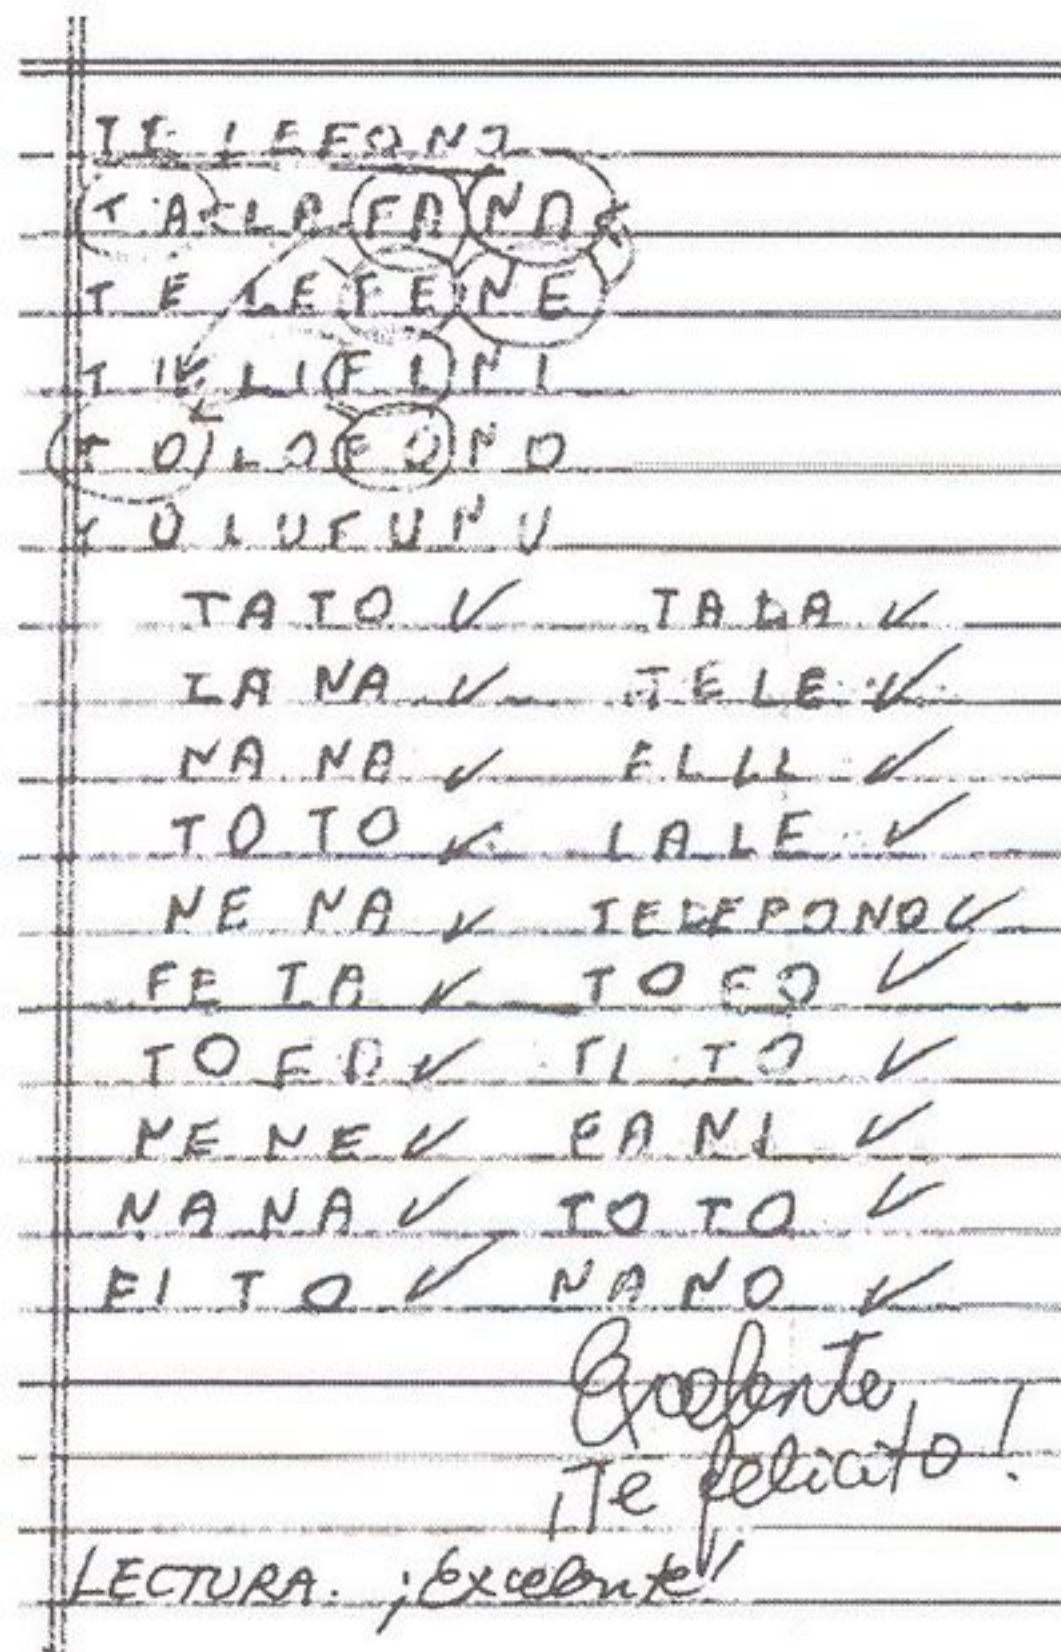 TE LEFONO
TA LA FA NA
TE LE FE NE
TI LI FI NI
TO LO FO NO
TU LU FU NU
TATO ✓ TALA ✓
LA NA ✓ TELE ✓
NA NA ✓ FILI ✓
TO TO ✓ LALE ✓
NE NA ✓ TELEFONO ✓
FE TA ✓ TOFO ✓
TOFA ✓ TI TO ✓
NE NE ✓ FA NI ✓
NA NA ✓ TO TO ✓
FI TO ✓ NA NO ✓
Excelente
¡Te felicito!
LECTURA. ¡Excelente!